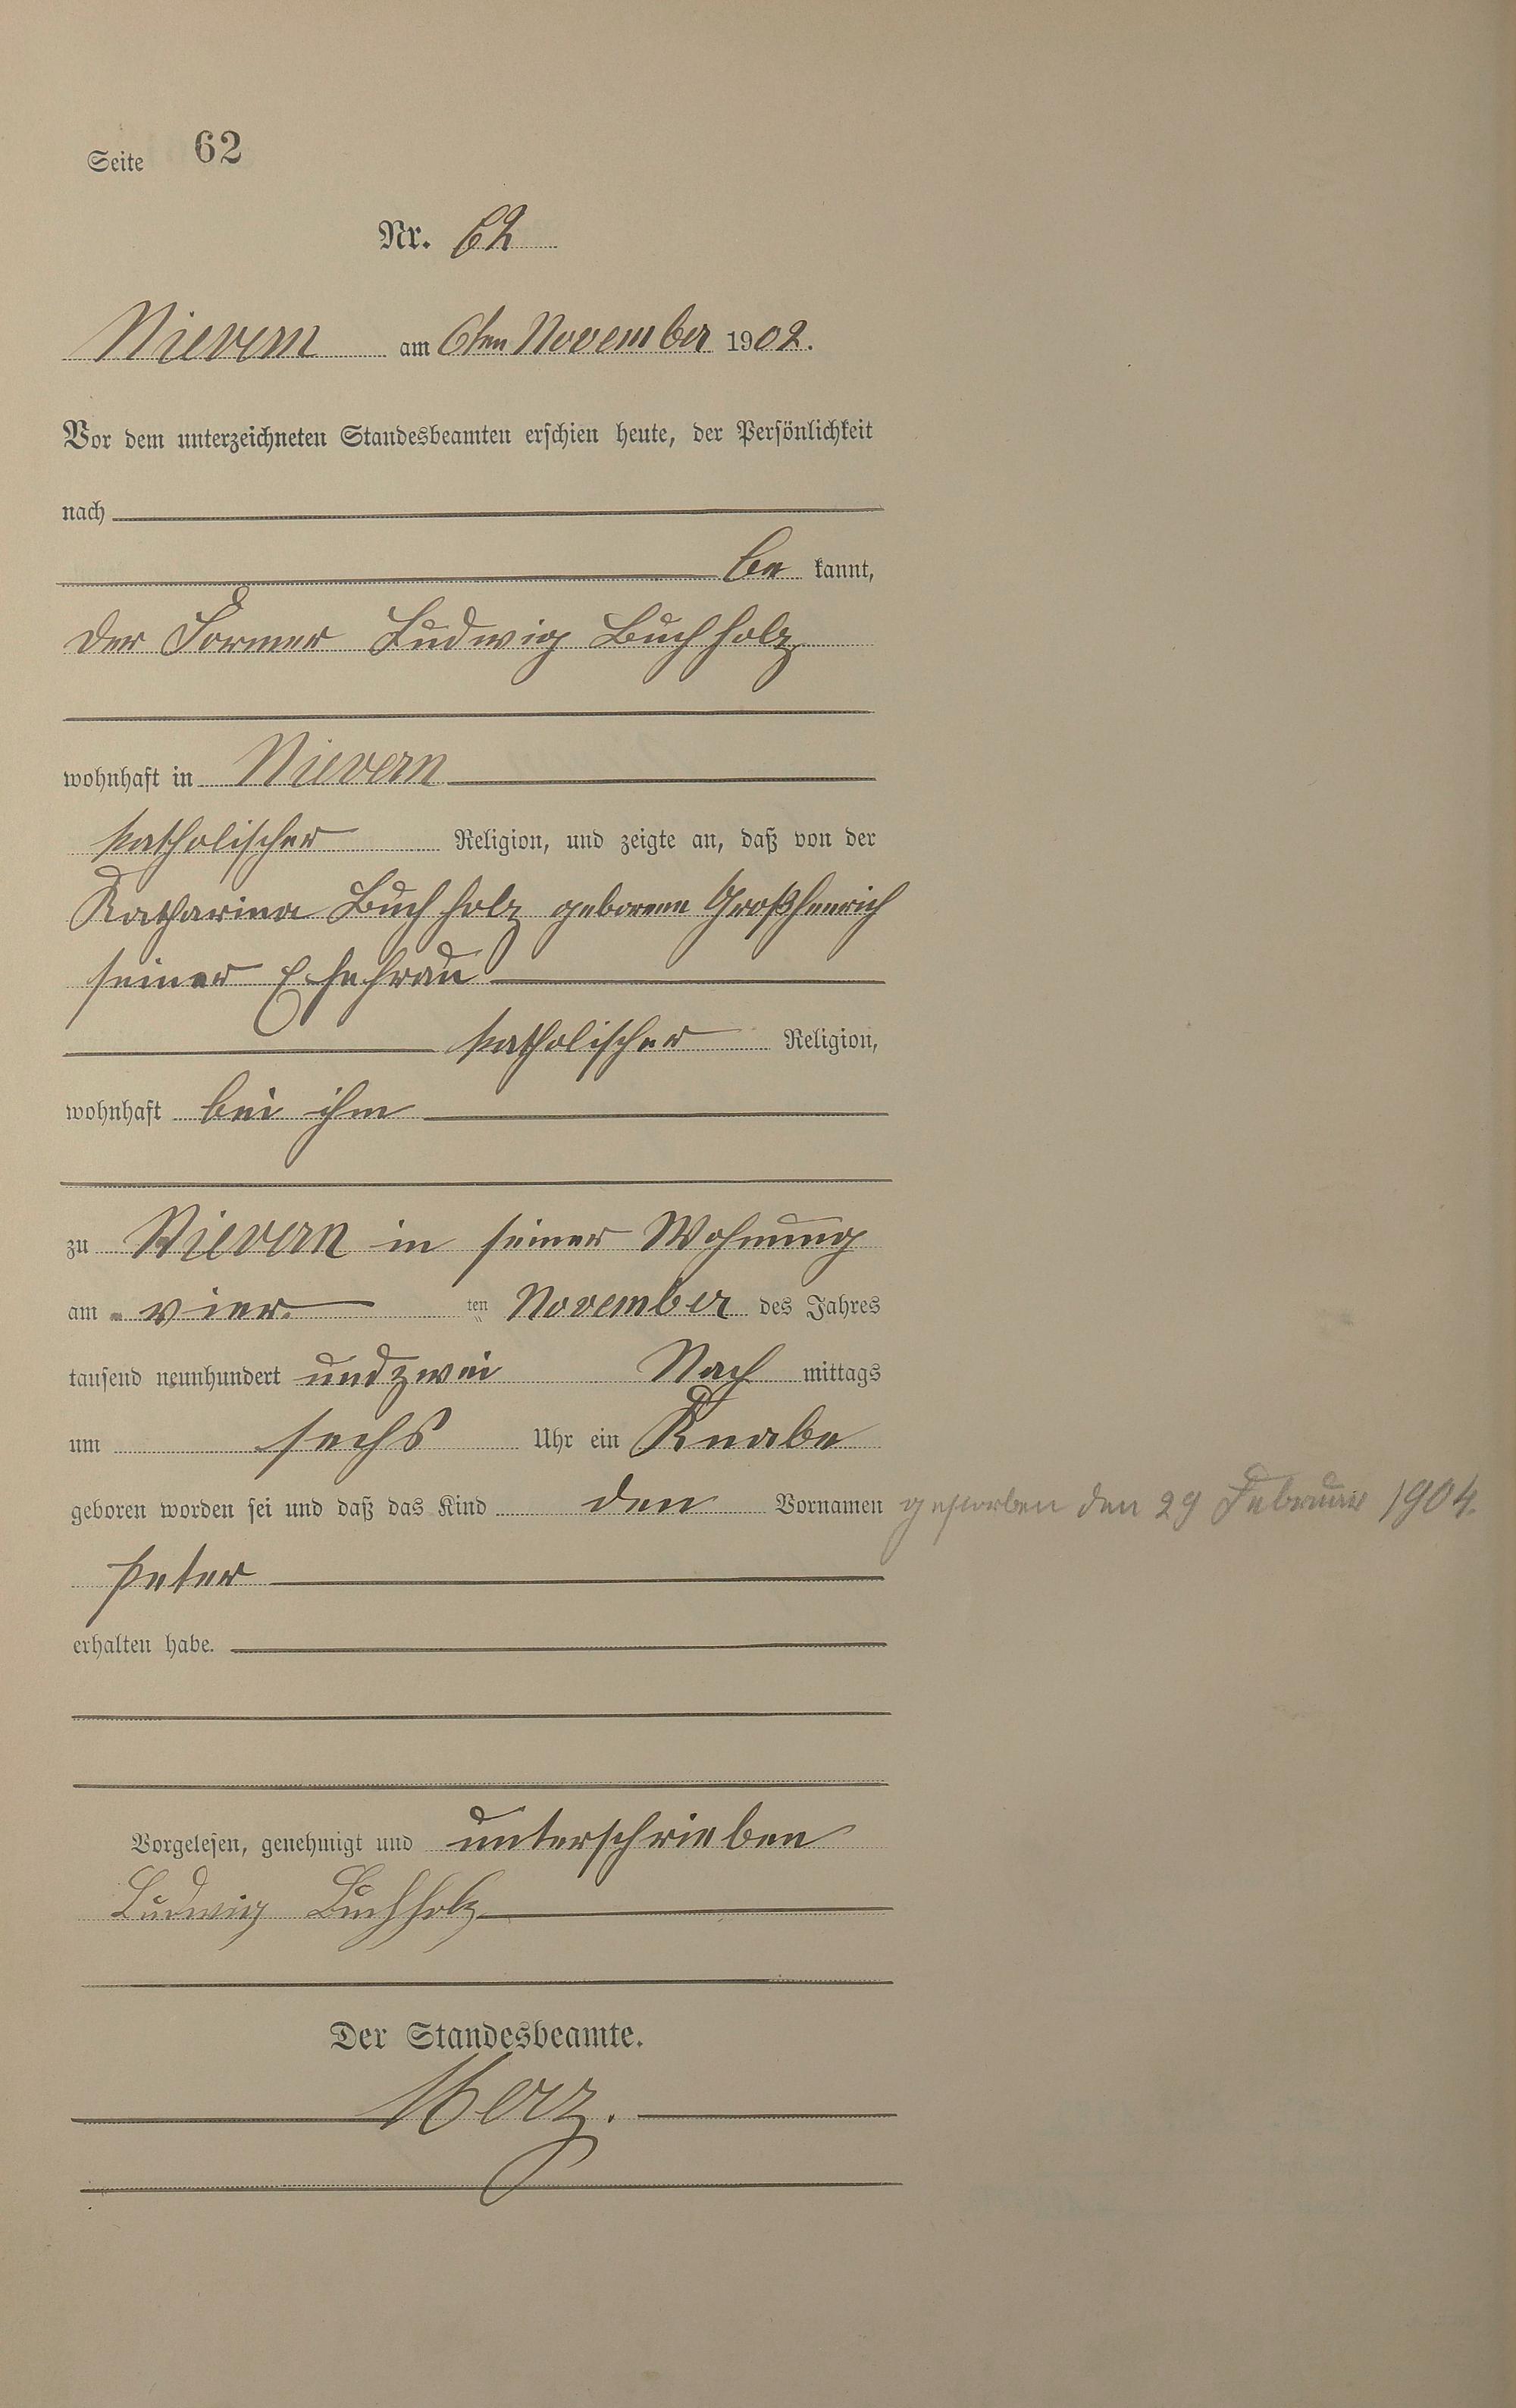 Seite 62
Nr. 62
Nievern am 6ten November 1902.
Vor dem unterzeichneten Standesbeamten erschien heute, der Persönlichkeit
nach
be kannt,
der Former Ludwig Buchholz
wohnhaft in Nievern
katholischer Religion, und zeigte an, daß von der
Katharina Buchholz geborene Großhenrich
seiner Ehefrau
katholischer Religion,
wohnhaft bei ihm
zu Nievern in seiner Wohnung
am vier ten November des Jahres
tausend neunhundert und zwei Nach mittags
um sechs Uhr ein Knabe
geboren worden sei und daß das Kind den Vornamen gestorben den 29 Februar 1904.
Peter
erhalten habe.
Vorgelesen, genehmigt und unterschrieben
Ludwig Buchholz
Der Standesbeamte.
Merz.